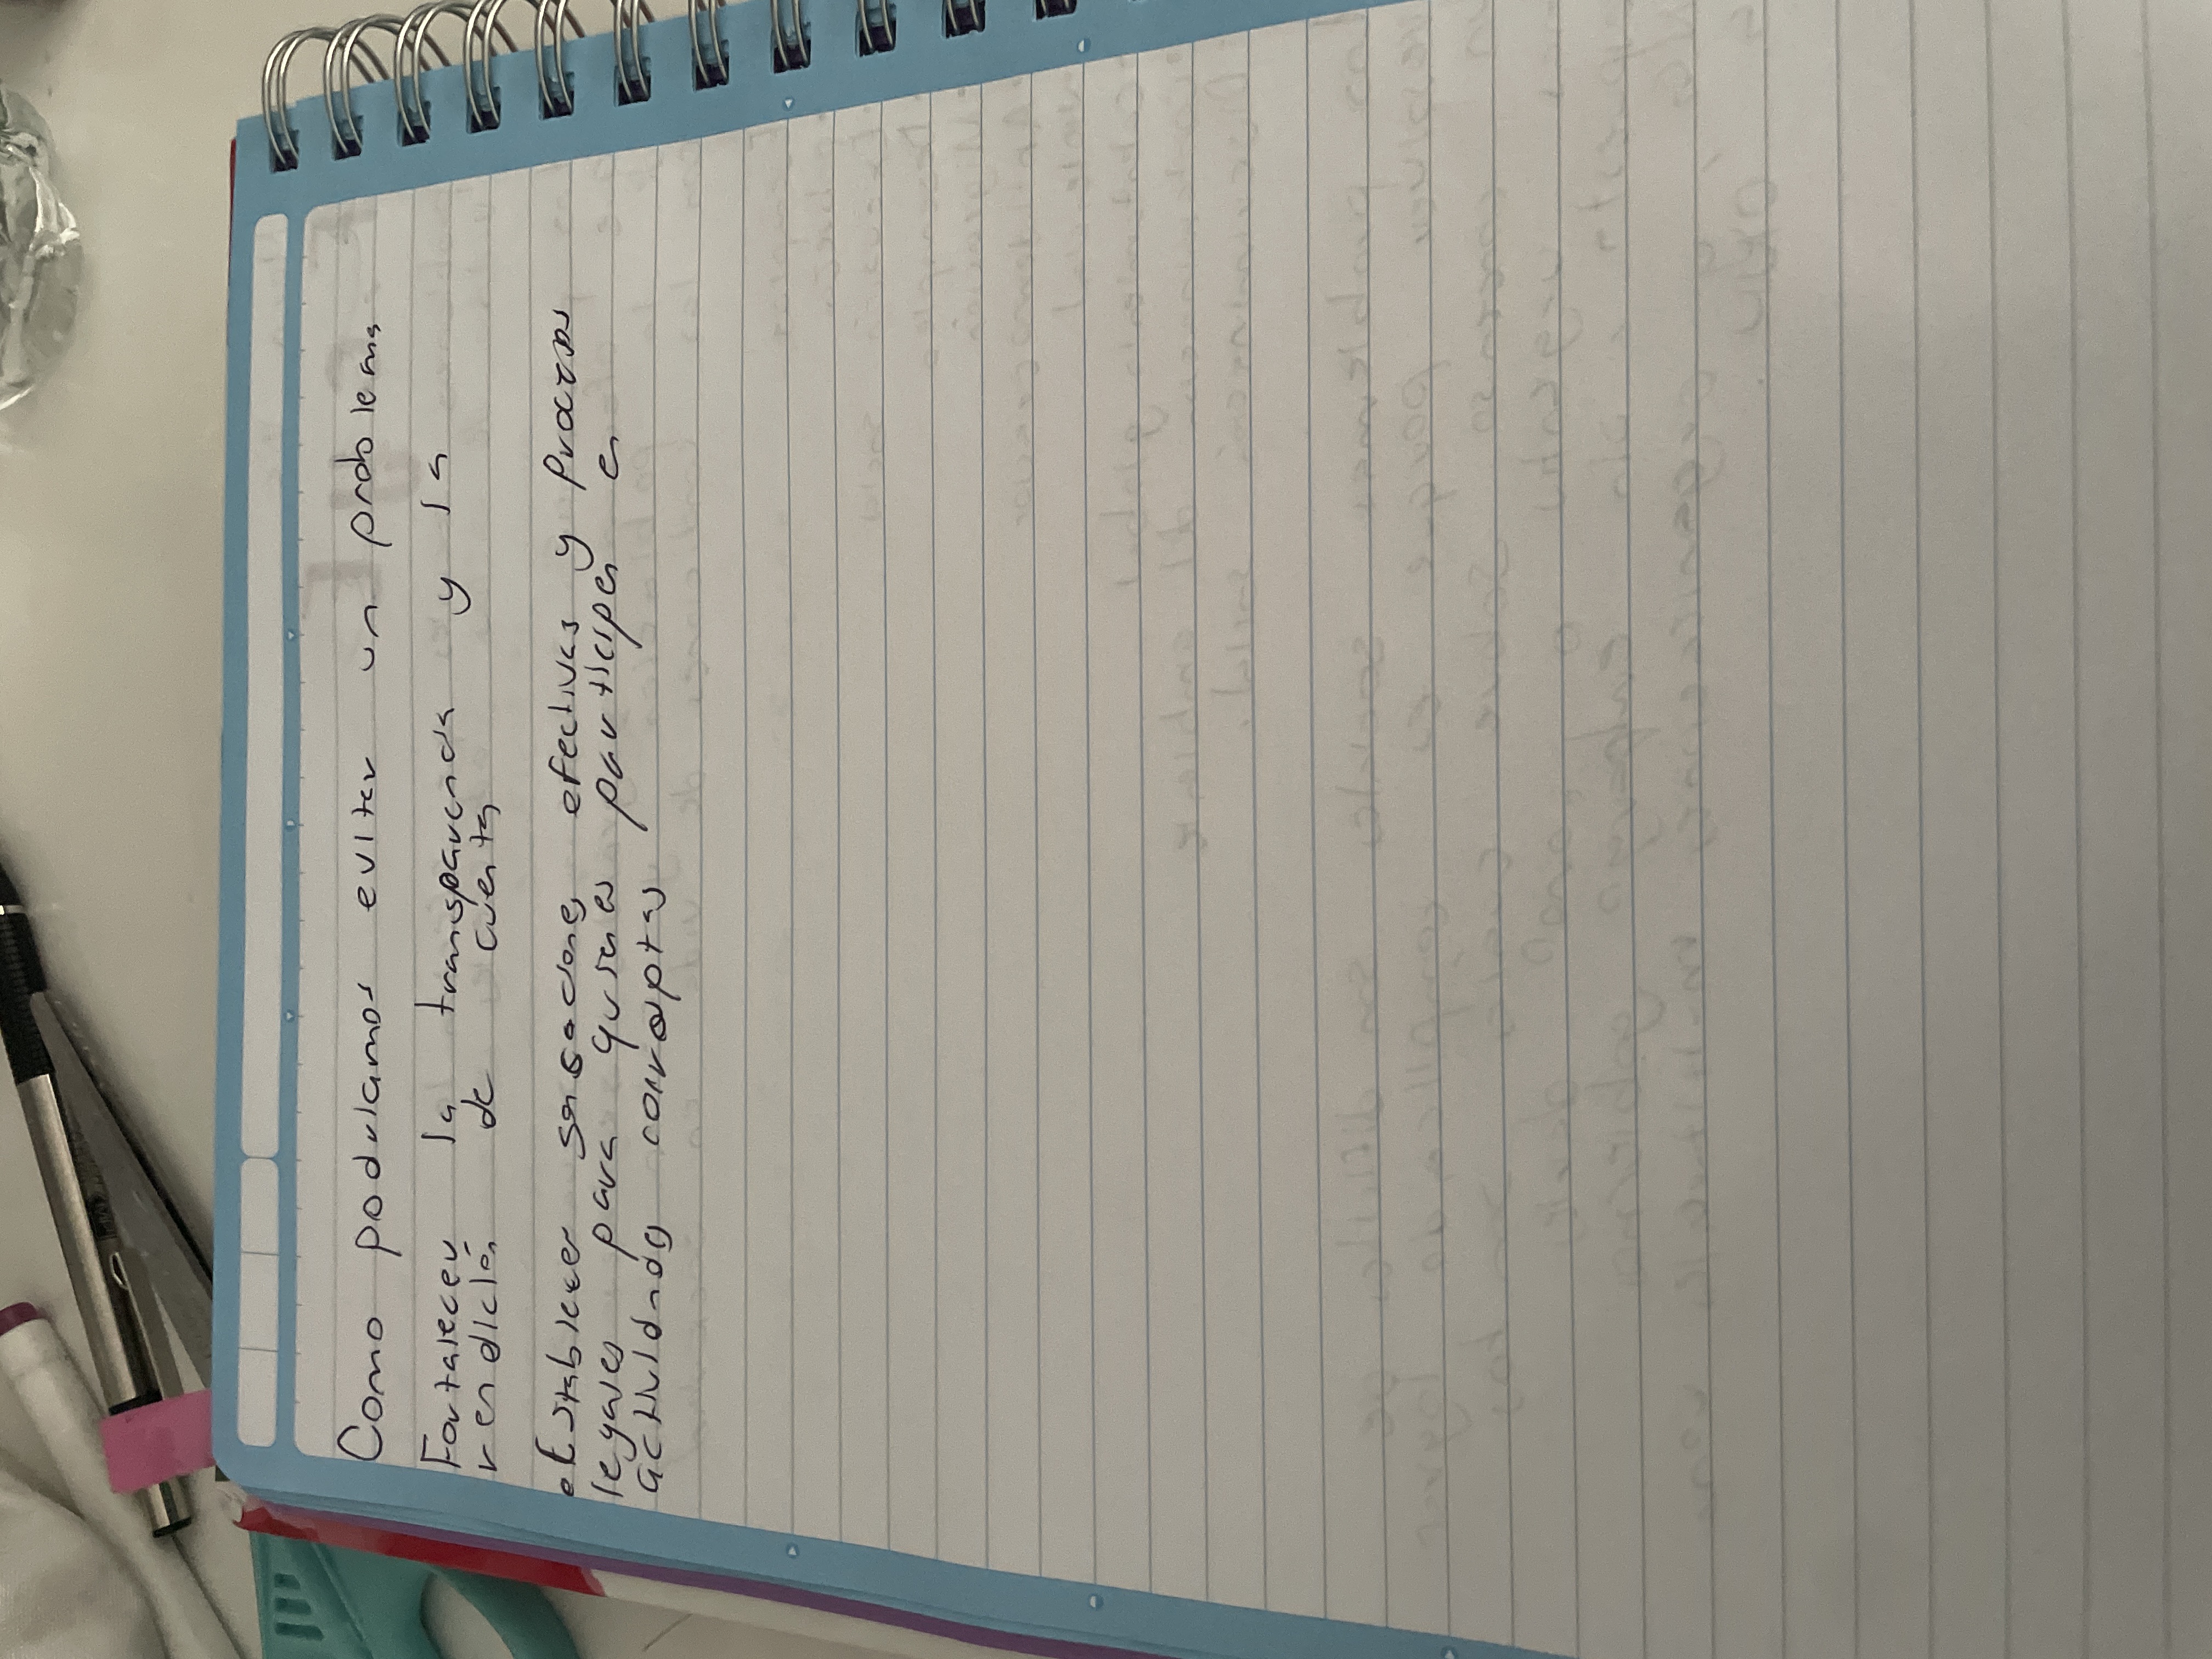 Como podriamos evitar un problema
Fortalecer la transparencia y la
rendición de cuenta
establecer sansaciones efectivas y procesos
legales para quienes participen en
actividades corruptas